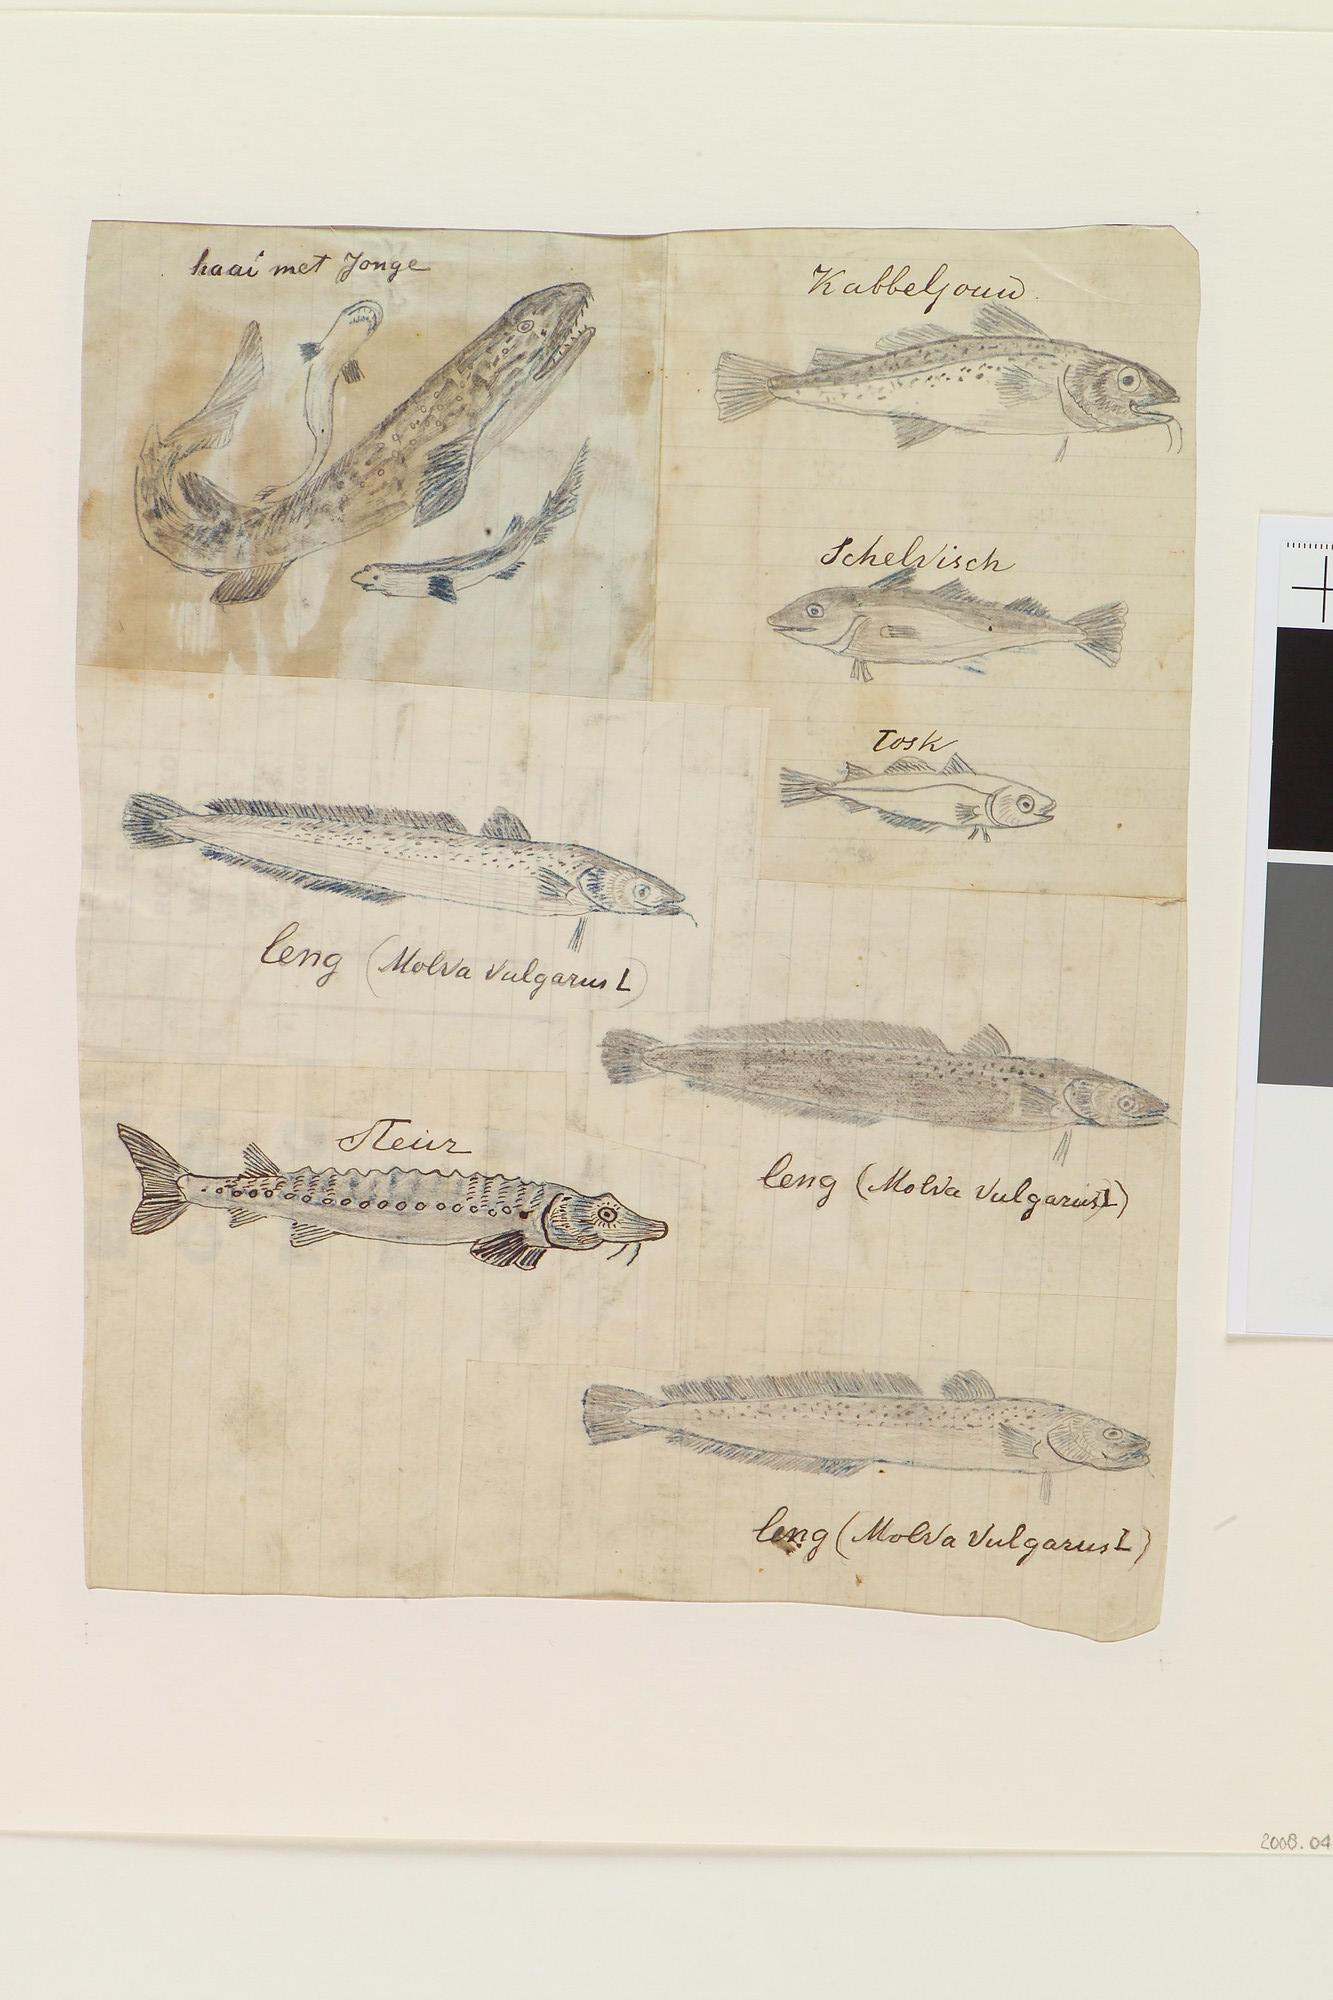 haai met Jonge
Kabbeljouw
Schelvisch
Tosk
leng (Molva Vulgarus L)
leng (Molva Vulgarus L)
Steur
leng (Molva Vulgarus L)
2008.04